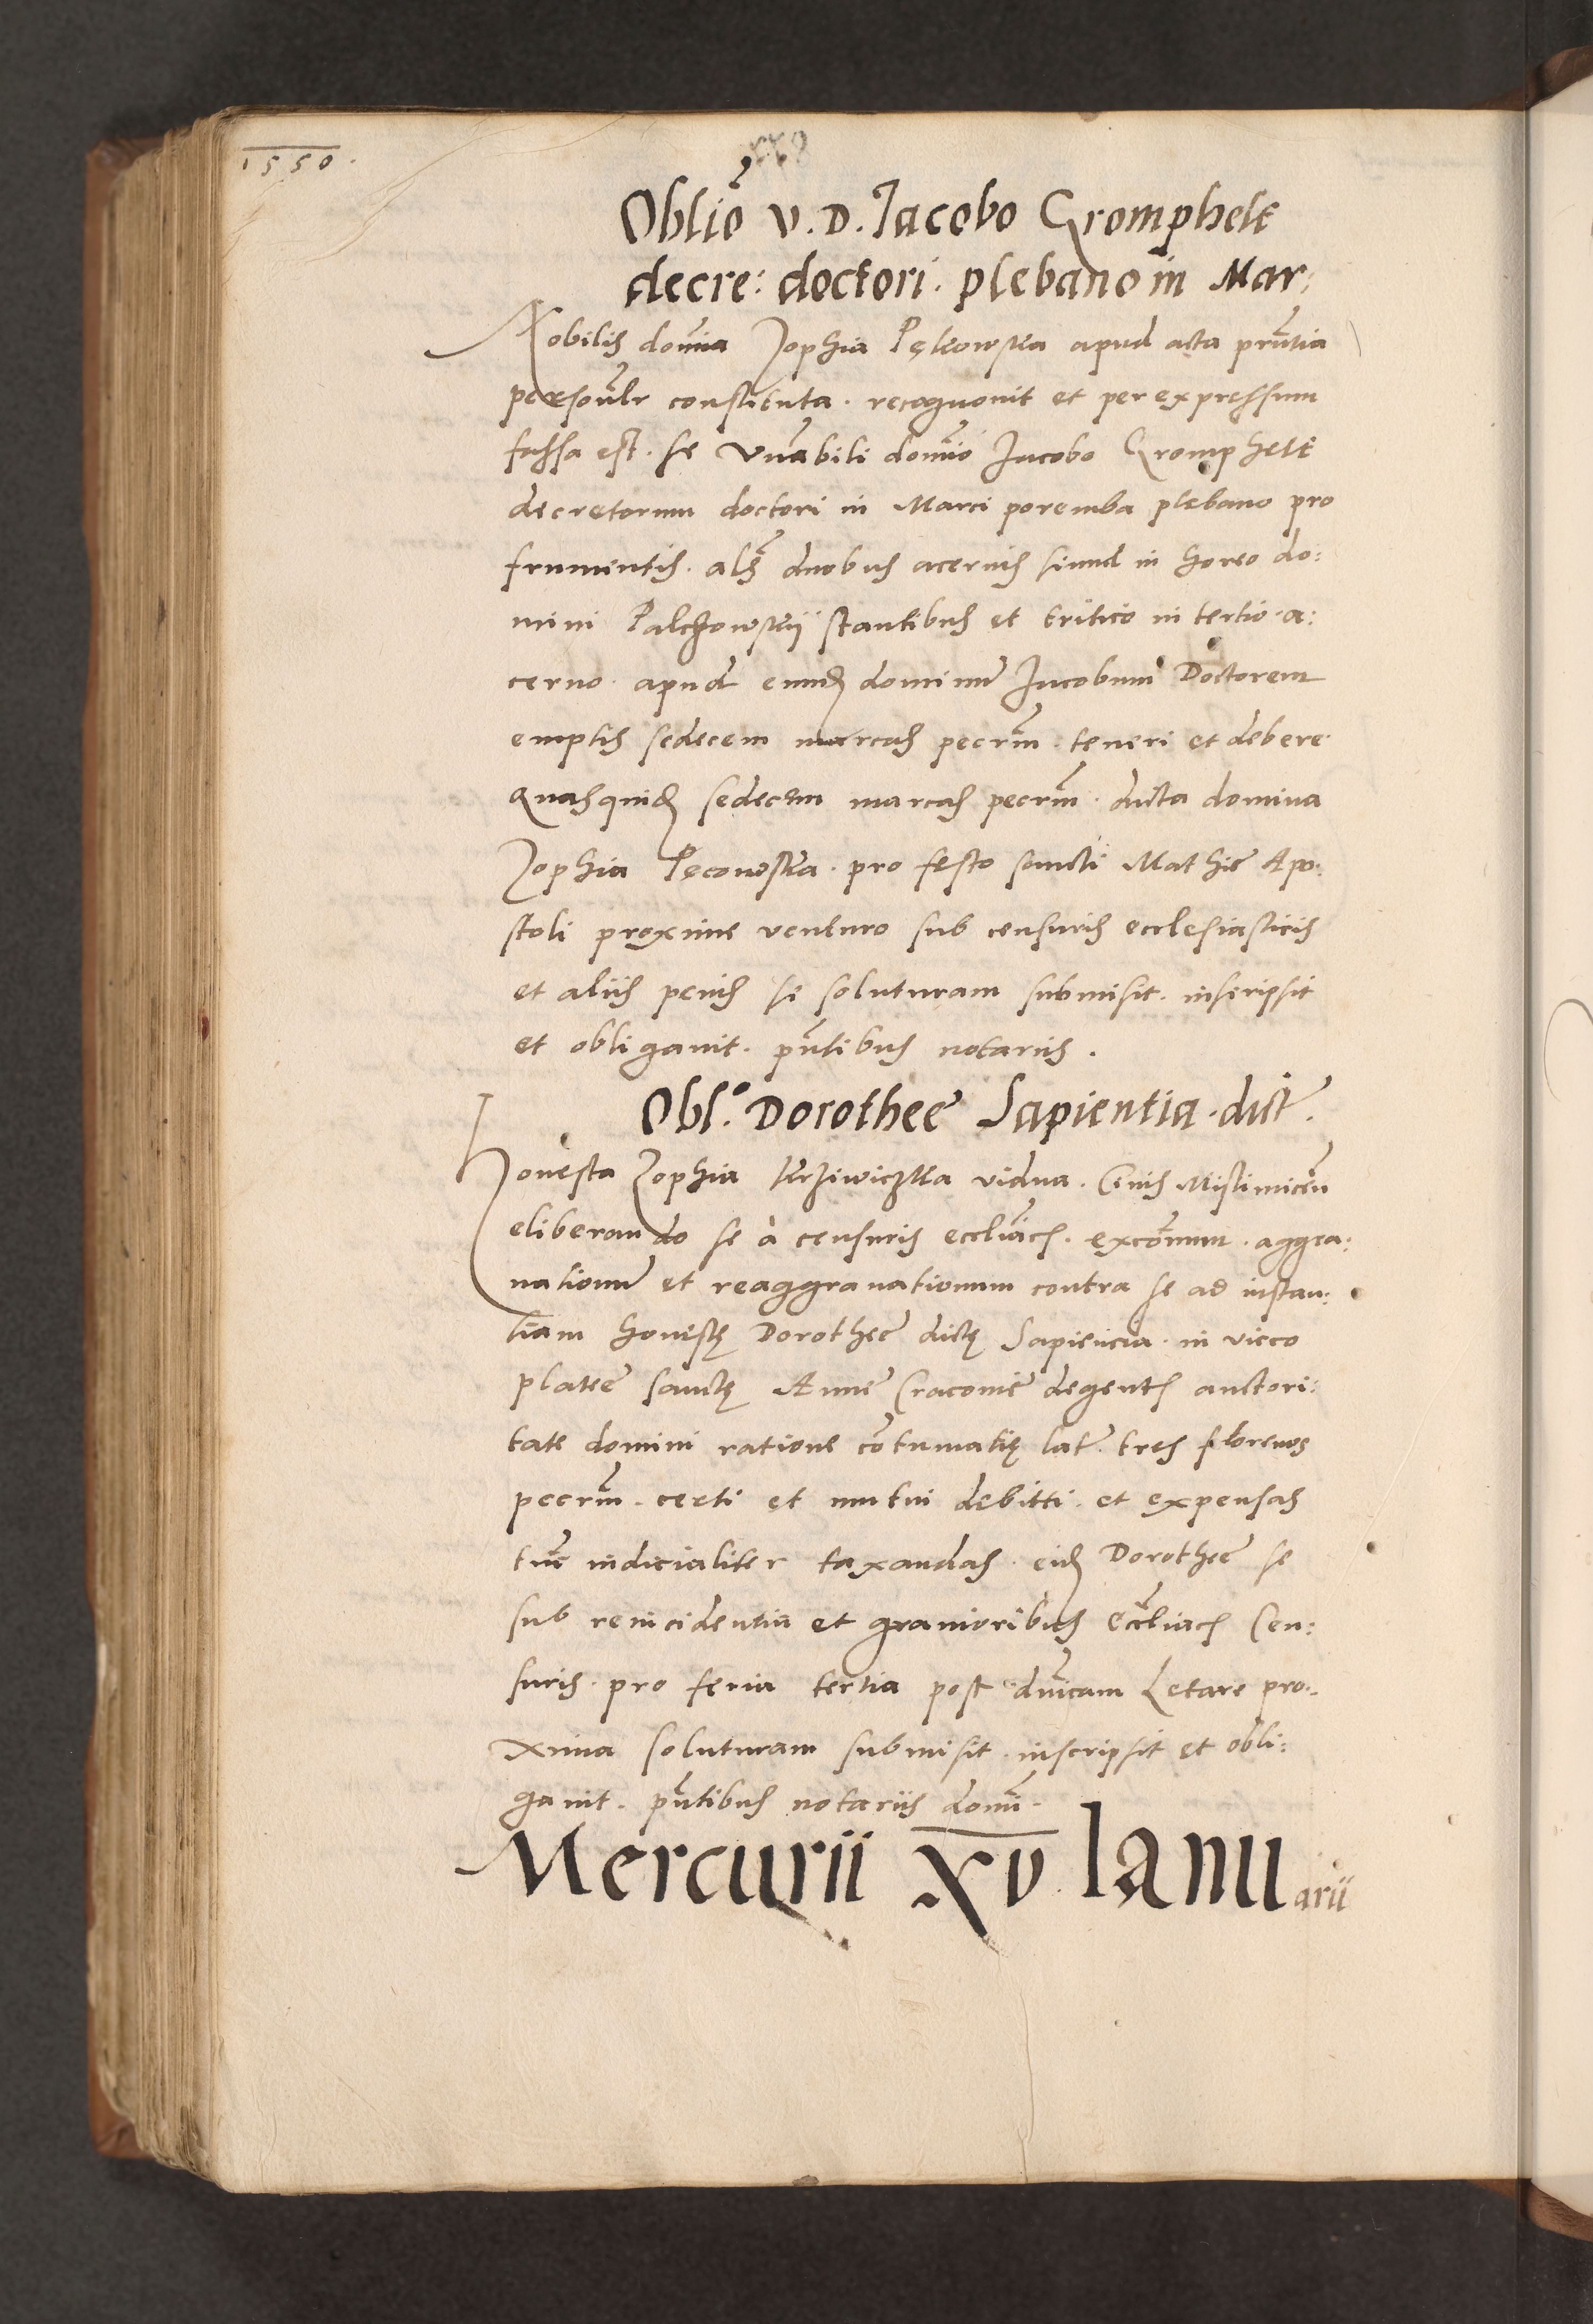 1550.
Oblio v. D. Jacobo Gromphelt
decre: doctori. plebano in Mar:
Nobilis domina Zophia Pękowska apud acta prntia
personlr constituta. recognovit et per expressum
fassa est. se Vnrabili domino Jacobo Gromphelt
decretorum doctori in Marci poremba plebano pro
frumentis. als duobus acervis simul in horreo do:
mini Palczowskij stantibus et tritico in tertio a:
cervo. apud eundem dominum Jacobum Doctorem
emptis sedecem marcas pecrm. teneri et debere.
Quasquidem sedecem marcas pecrm. dicta domina
Zophia Pęcowska. pro festo sancti Mathie Apo:
stoli proxime venturo sub censuris ecclesiasticis
et aliis penis se soluturam submisit. inscripsit
et obligavit. pntibus notariis.
Obl. Dorothee Sapientia dict.
Honesta Zophia vidua. Civis
eliberando se à censuris eccliacis. excomun. aggra:
vationum et reaggravationum contra se ad instan:
tiam honestę Dorothee dictę Sapiencia. in vicco
platee sanctę Anne Cracovie degentis auctori:
tate domini ratione contumatię lat. tres florenos
pecrm. certi et mutui debitti. et expensas
tunc indicialiter taxandas. eidem Dorothee se
sub reincidentia et gravioribus eccliacis Cen:
suris. pro feria tertia post dnicam Letare pro:
xima soluturam submisit. inscripsit et obli:
gavit. pntibus notariis domi.
Mercurii XV Ianuarii